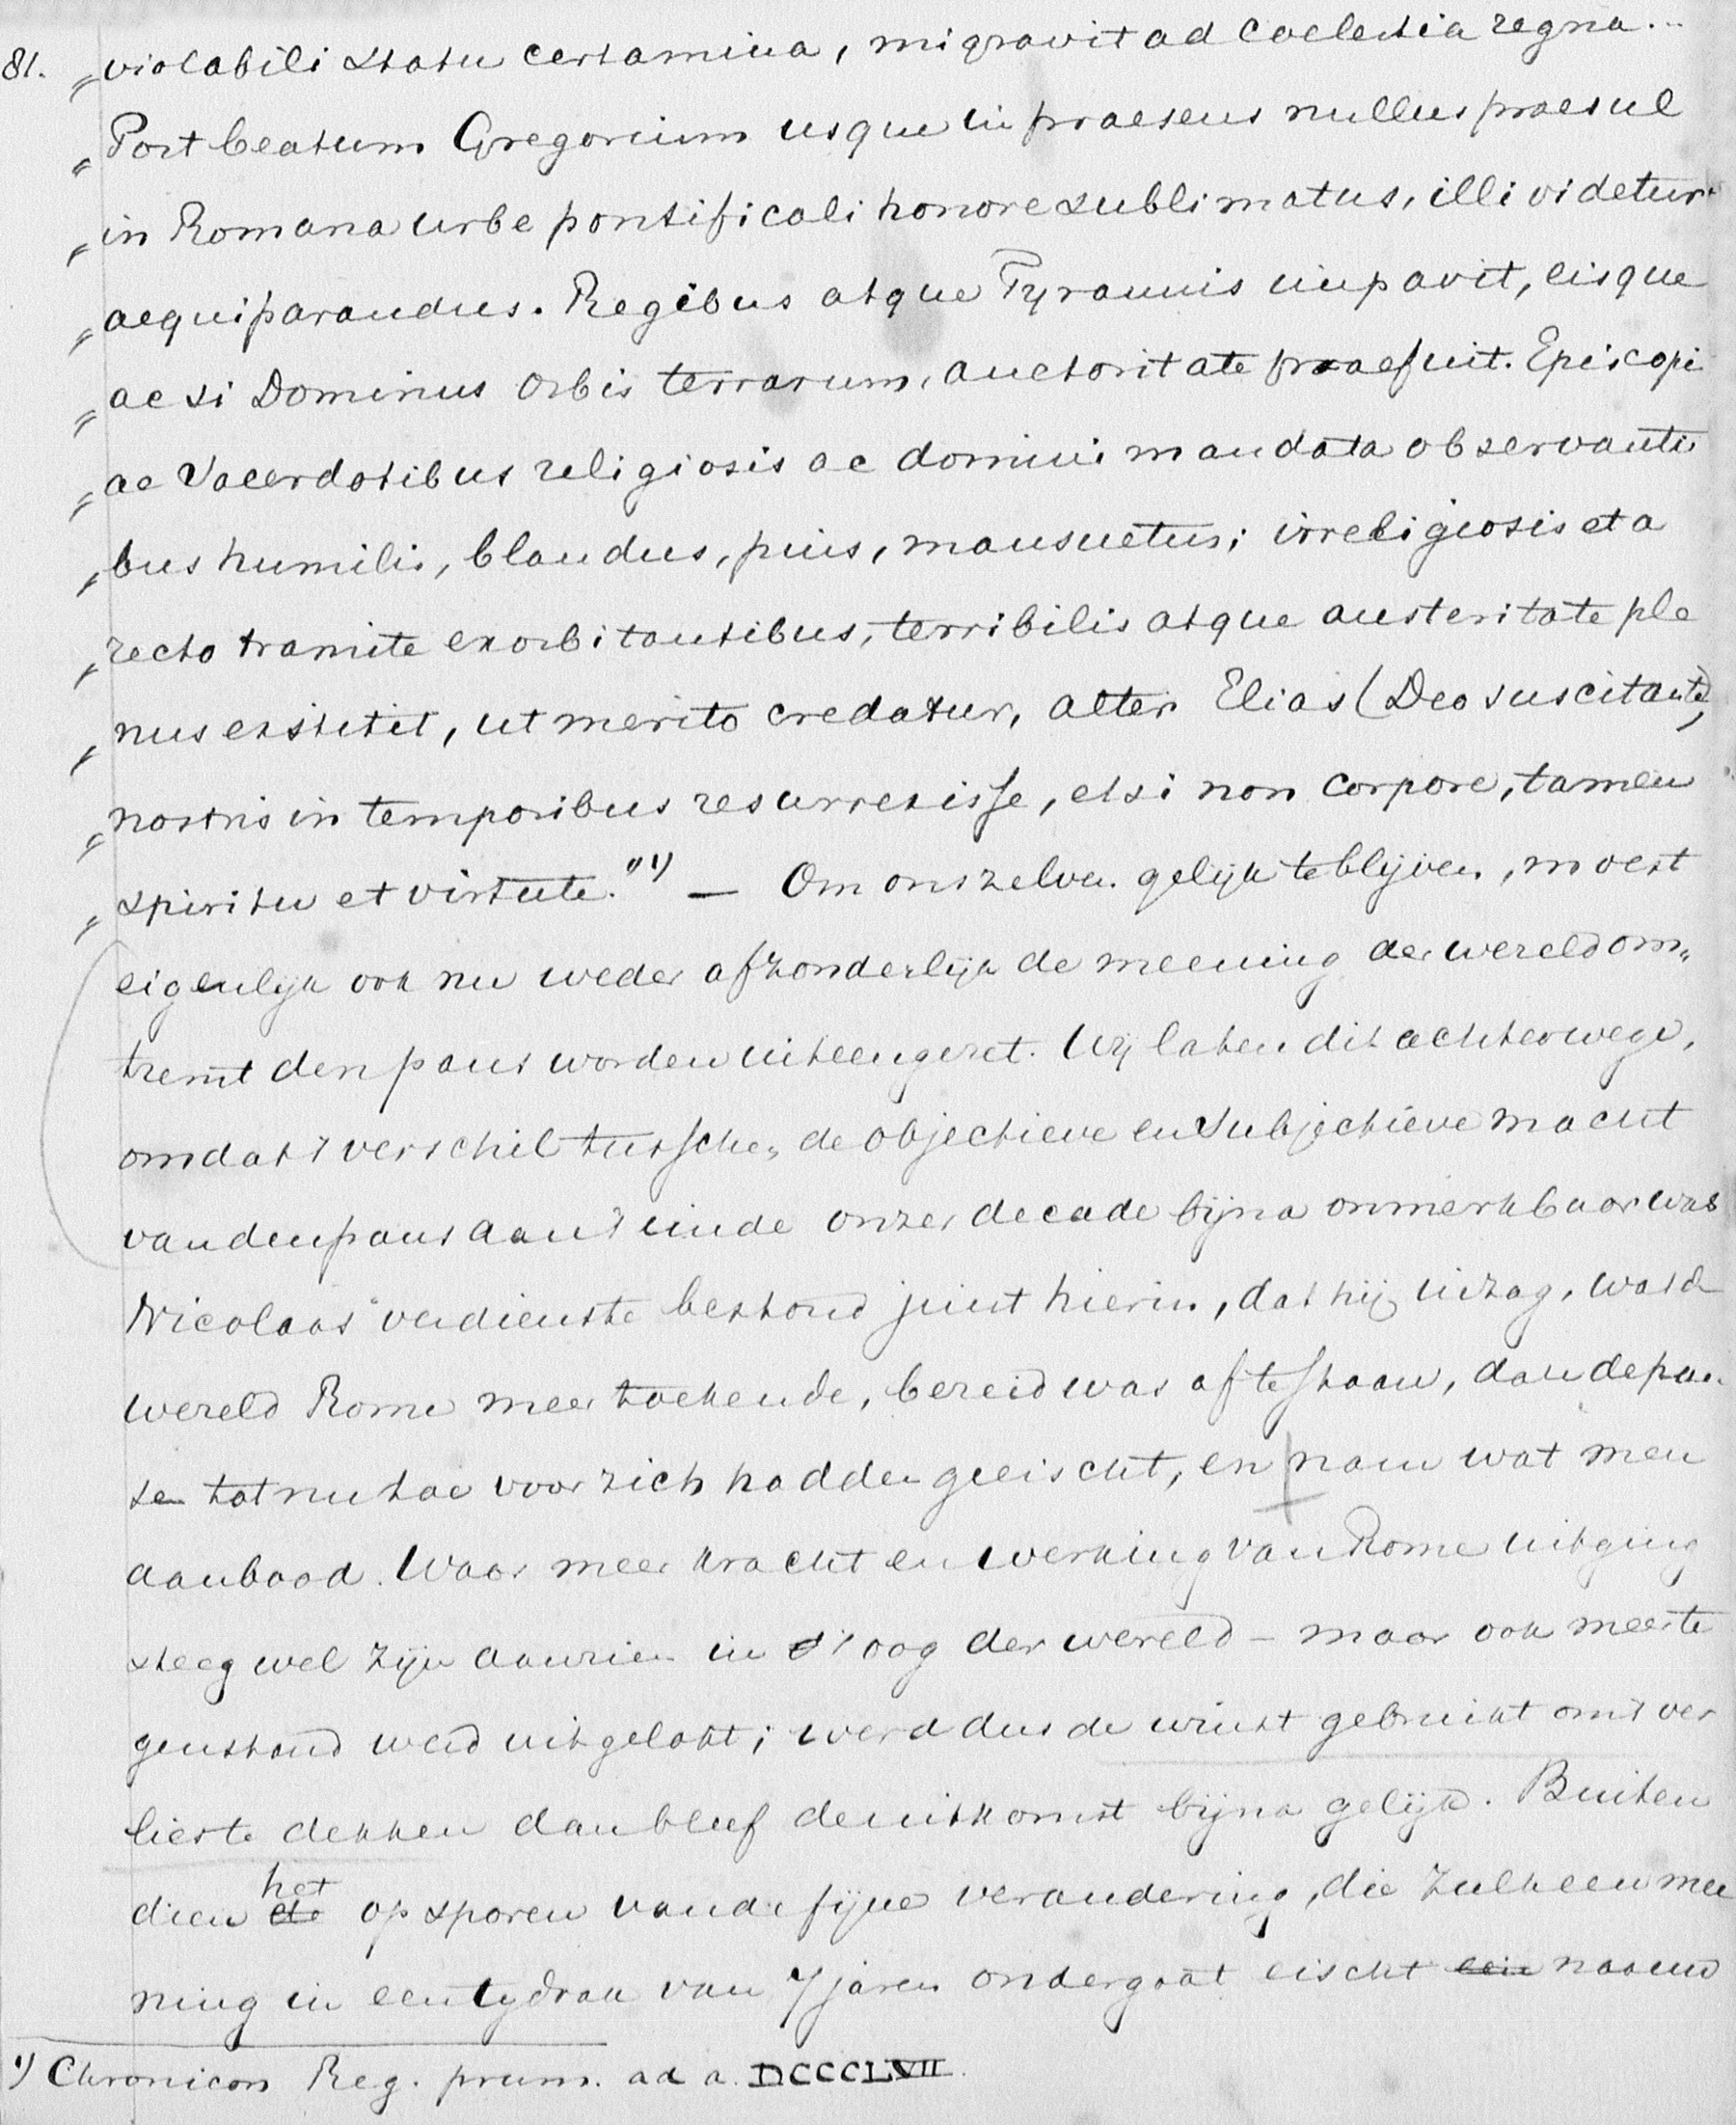 81. „violabili statu certamina, migravit ad coelestia regna...
„Post beatum Gregorium usque in praesens nullus praesul
„in Romana urbe pontificali honore sublimatus, illi videtur
„aequiparandus. Regibus atque Tyrannis impavit, eisque
„ac si Dominus orbis terrarum, auctoritate praefuit. Episcopi
„ac Sacerdotibus religiosis ac domini mandata observanti
„bus humilis, blandus, pius, mansuetus; irreligiosis et a
„recto tramite exorbitantibus, terribilis atque austeritate ple
„nus exstitit, ut merito credatur, alter Elias (Deo suscitante)
„nostris in temporibus resurrexisse, etsi non corpore, tamen
„spiritu et virtute." 1) — Om onszelven gelijk te blijven, moest
eigenlijk ook nu weder afzonderlijk de meening der wereld om„
tremt den paus worden uiteengezet. Wij laten dit achterwege,
omdat 't verschil tusschen de objectieve en subjectieve macht
van den paus aan 't einde onzer decade bijna onmerkbaar was
Nicolaas' verdienste bestond juist hierin, dat hij inzag, wat de
wereld Rome meer toekende, bereid was af te staan, dan de pau
sen tot nu toe voor zich hadden geeischt, en nam wat men
aanbood. Waar meer kracht en werking van Rome uitging
steeg wel zijn aanzien in 't oog der wereld – maar ook meer te
genstand werd uitgelokt; werd dus de winst gebruikt om 't ver
lies te dekken dan bleef de uitkomst bijna gelijk. Buiten
dien de het opsporen van de fijne verandering, die zulk een mee
ning in een tijdvak van 7 jaren ondergaat eischt een naauw
1) Chronicon Reg. prum. ad a. DCCCLXVII.